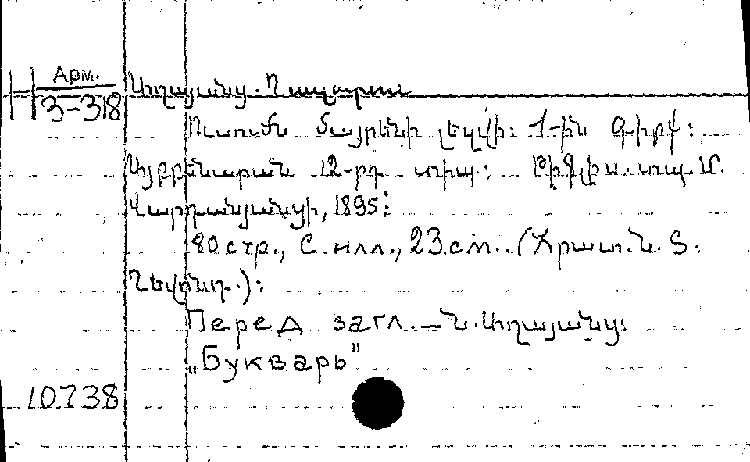 Арм.
3-318
Աղայանց. Ղազարոս
Ուսումն մայրենի լեզվի: 1-ին գիրք:
Այբբենարան 12-րդ տիպ: Թիֆլիս. տպ. Մ.
Վարդանյանցի, 1895:
80 стр., с илл., 23 см. (Հրատ. Ն. Տ.
Ղեվոնդ.):
Перед загл. — Ղ. Աղայանց:
„Букварь"
10738